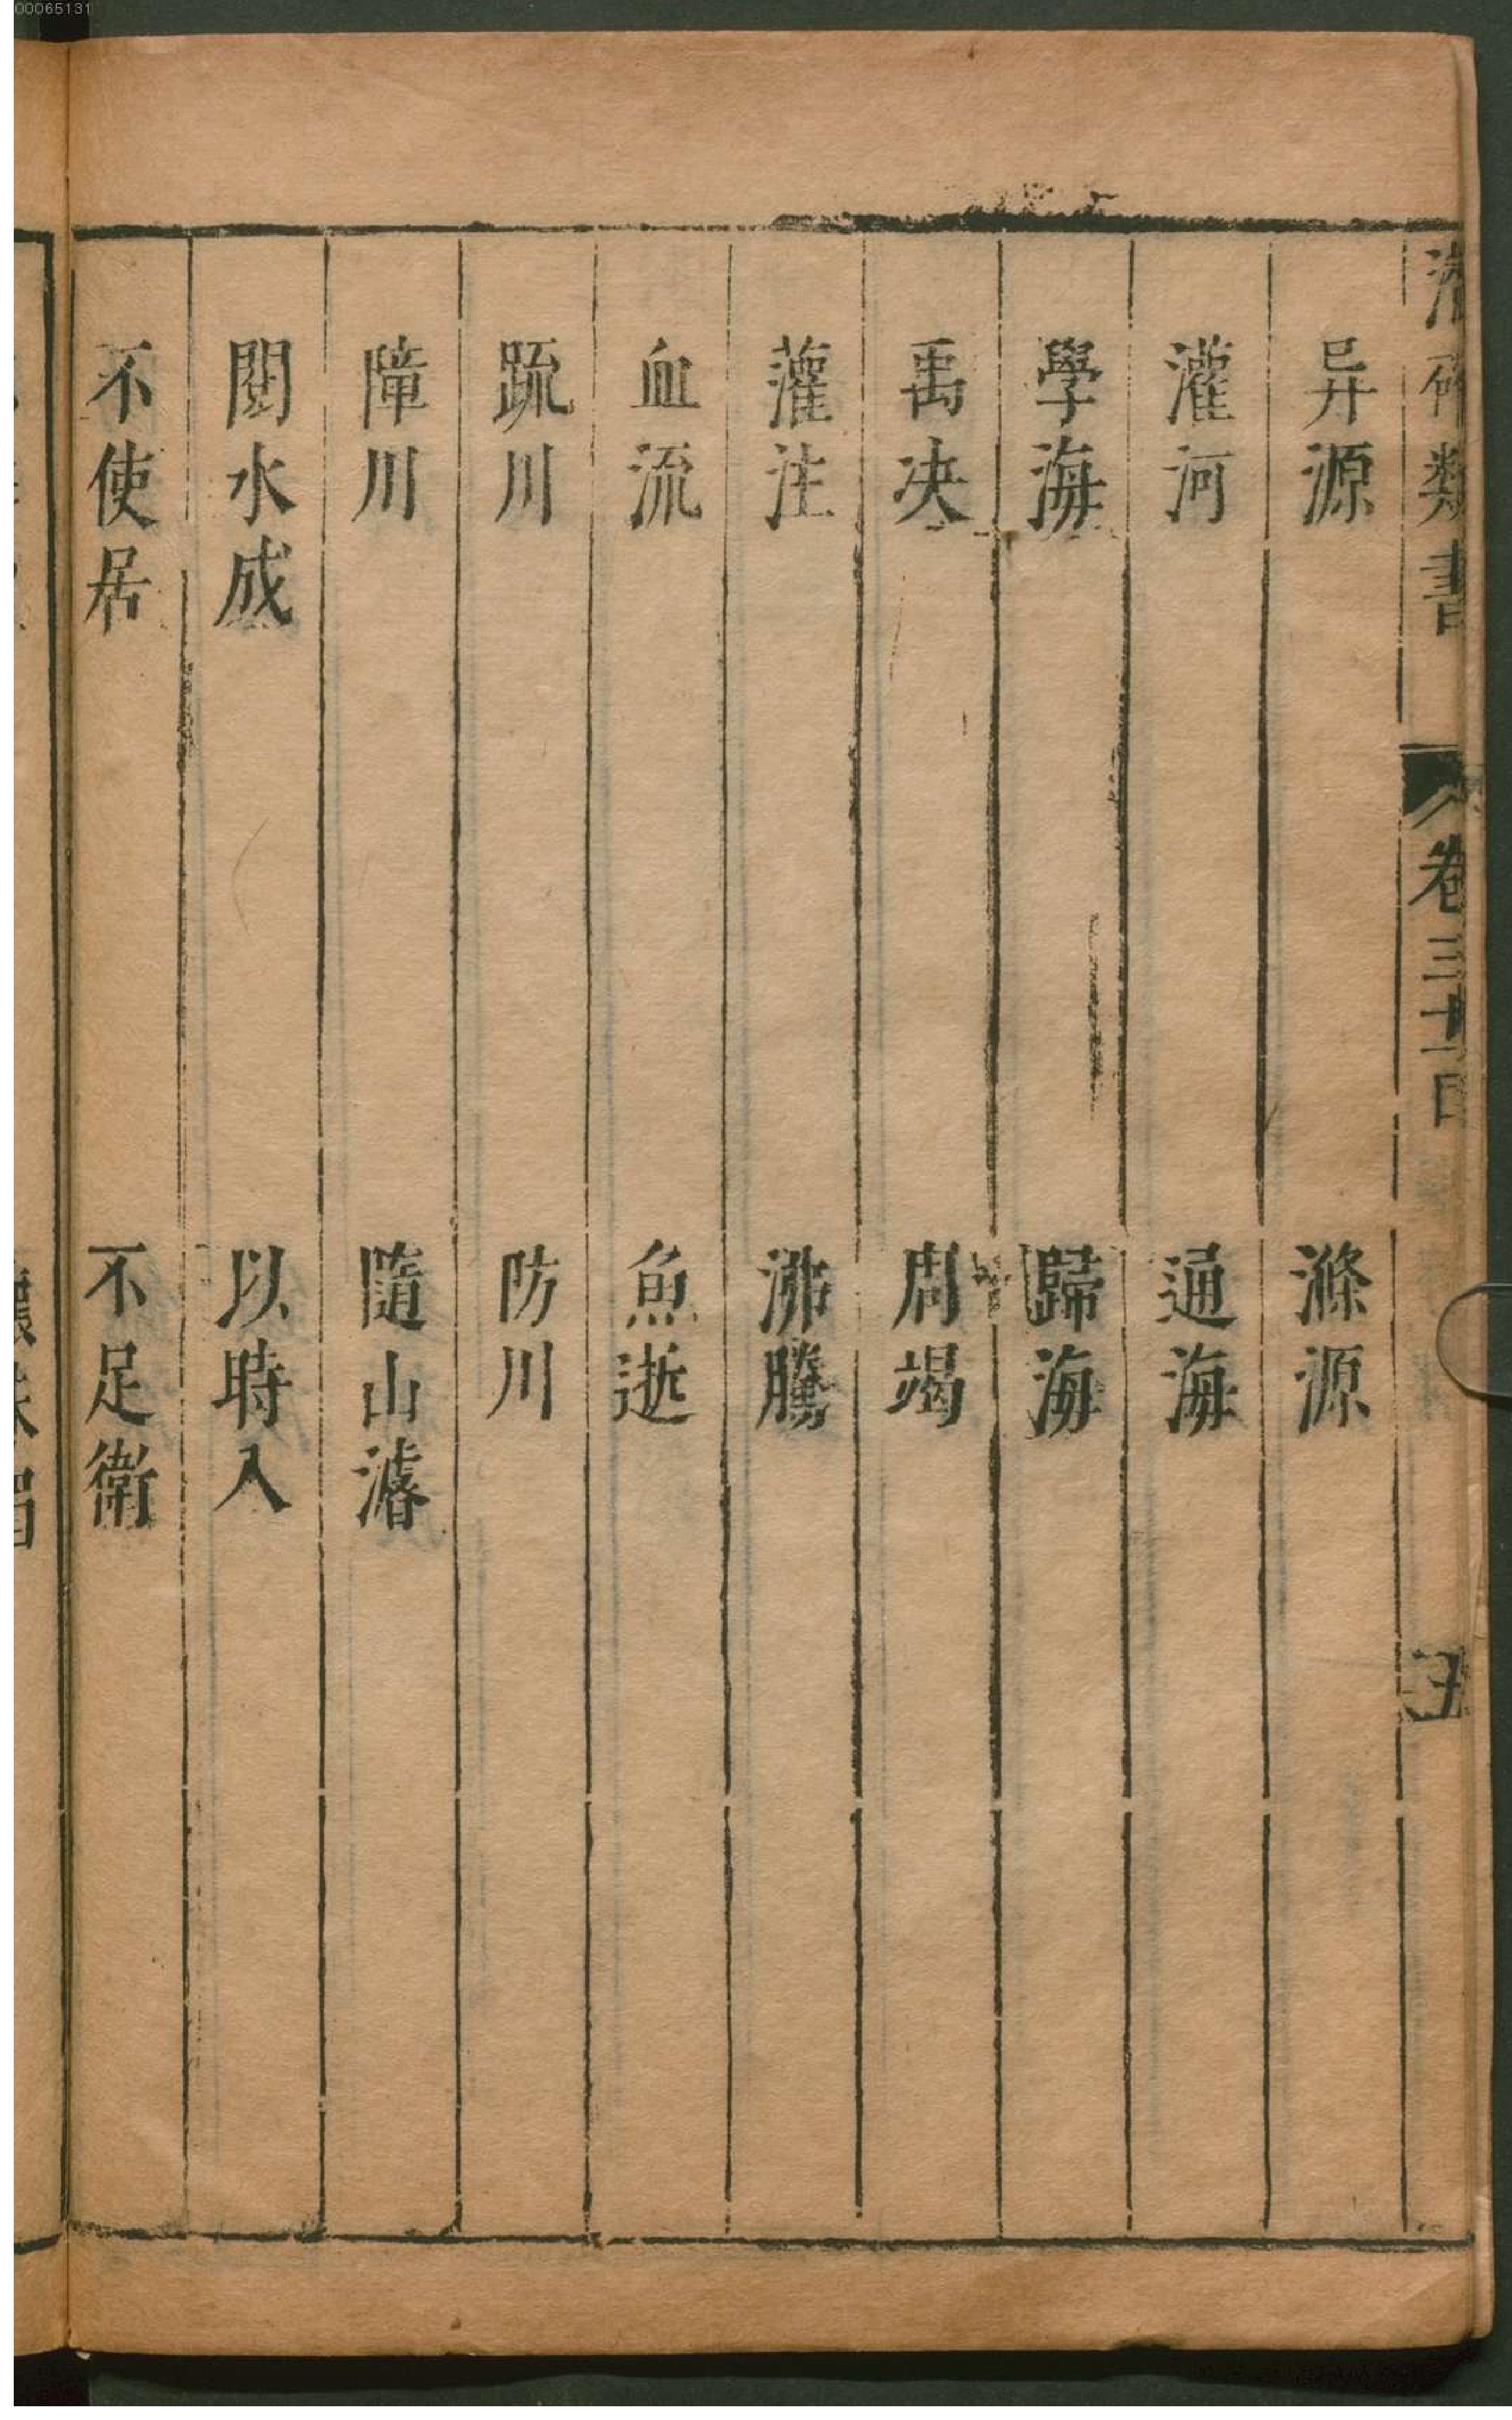 00065131
類書
卷三十四
五
异源　滌源
灌河　通海
學海　歸海
禹决　周竭
灌注　沸騰
血流　魚逝
疏川　防川
障川　隨山濬
閱水成　以時入
不使居　不足衛